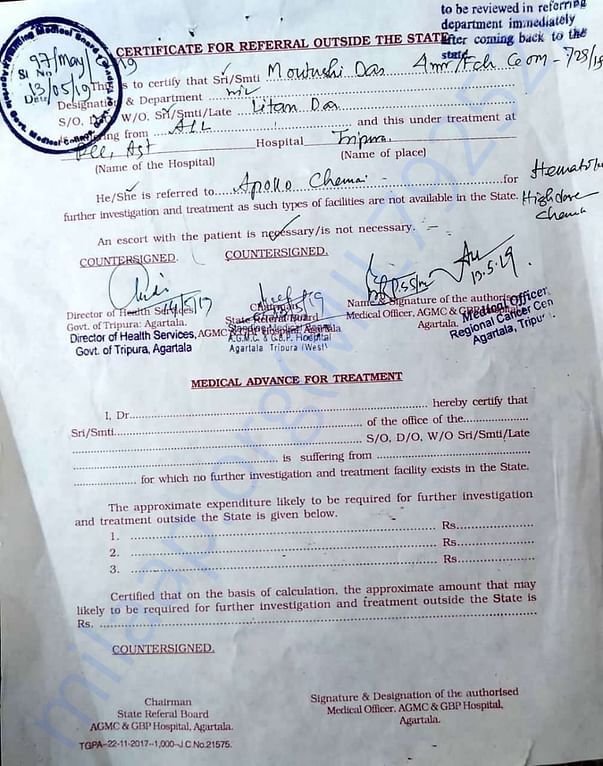 to be reviewed in referring
department immediately
after coming back to the
state
CERTIFICATE FOR REFERRAL OUTSIDE THE STATE
Standing Medical Board
Govt. Medical College, Govt. of Tripura
Sl No 97/May/19
Date 13/05/19
This is to certify that Sri/Smti Moutushi Das
Designation & Department Nil
S/O, D/O, W/O. Sri/Smti/Late Litan Das
is suffering from ALL and this under treatment at
Hospital Tripura
(Name of the Hospital) (Name of place)
He/She is referred to Apollo Chennai for
further investigation and treatment as such types of facilities are not available in the State.
High dose
An escort with the patient is necessary/is not necessary.
COUNTERSIGNED. COUNTERSIGNED.
14/5/19
13.5.19
Director of Health Services
Govt. of Tripura: Agartala.
Director of Health Services,
Govt. of Tripura, Agartala
Chairman
State Referal Board
AGMC & GBP Hospital, Agartala
Standing Medical Board
A.G.M.C. & G.B.P. Hospital
Agartala Tripura (West)
Name & Signature of the authorised
Medical Officer, AGMC & GBP Hospital,
Agartala.
Medical Officer
Regional Cancer Cen
Agartala, Tripur
MEDICAL ADVANCE FOR TREATMENT
I, Dr. hereby certify that
Sri/Smti. of the office of the
S/O, D/O, W/O Sri/Smti/Late
is suffering from
for which no further investigation and treatment facility exists in the State.
The approximate expenditure likely to be required for further investigation
and treatment outside the State is given below.
1. Rs.
2. Rs.
3. Rs.
Certified that on the basis of calculation, the approximate amount that may
likely to be required for further investigation and treatment outside the State is
Rs.
COUNTERSIGNED.
Chairman
State Referal Board
AGMC & GBP Hospital, Agartala.
Signature & Designation of the authorised
Medical Officer, AGMC & GBP Hospital,
Agartala.
TGPA--22-11-2017--1,000--J.C.No.21575.